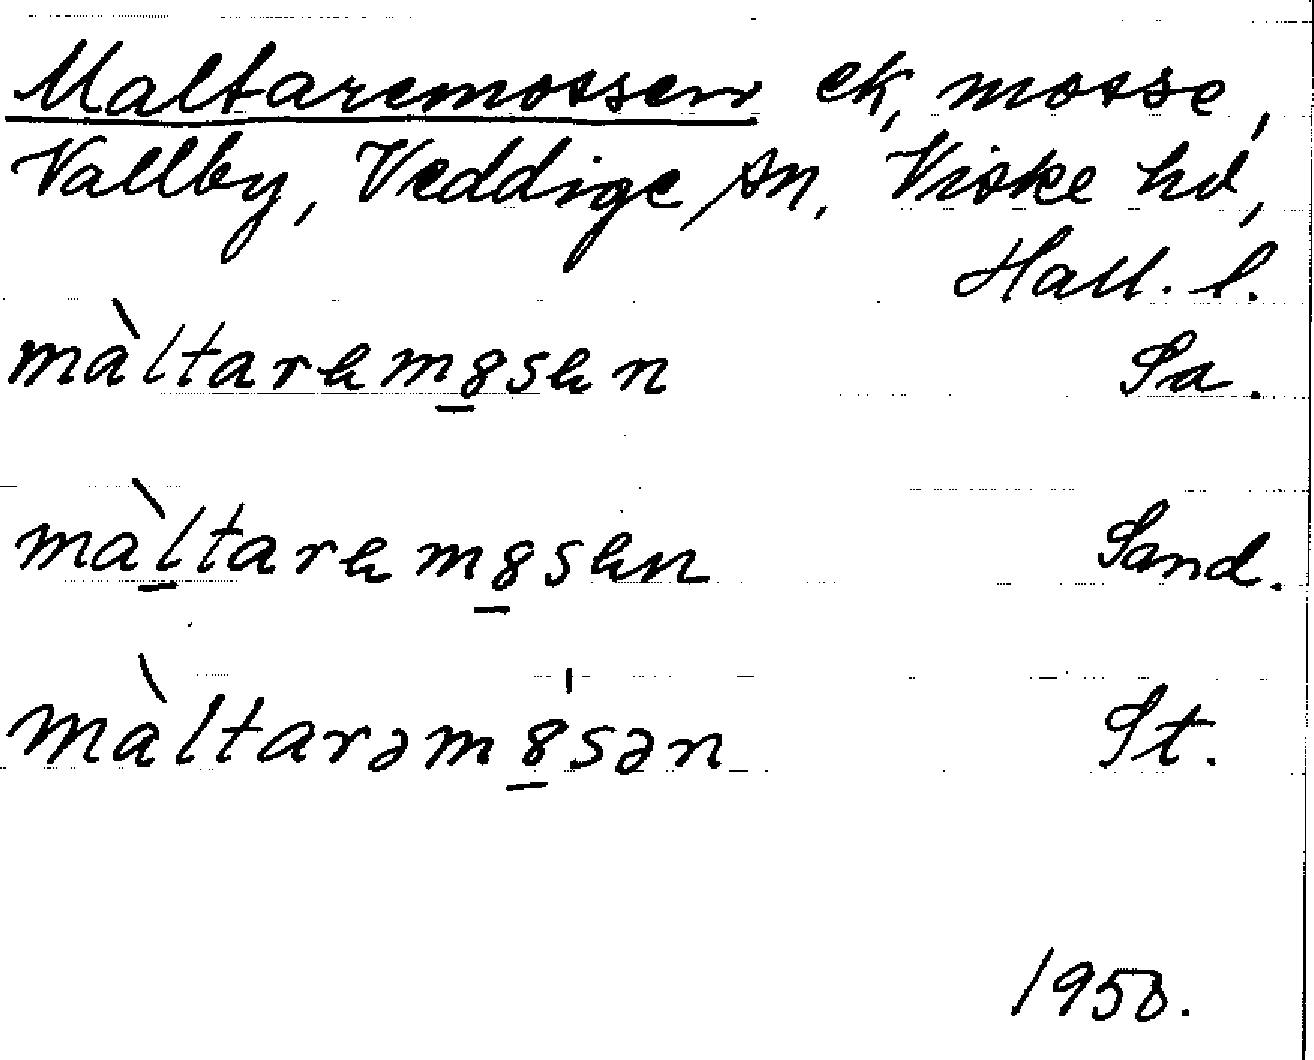 Maltaremossen ek, mosse,
Vallby, Veddige sn, Viske hd,
Hall. l.
màltarem8sen Sa.
màltarem8sen Sand.
màltarəm8sən St.
1958.